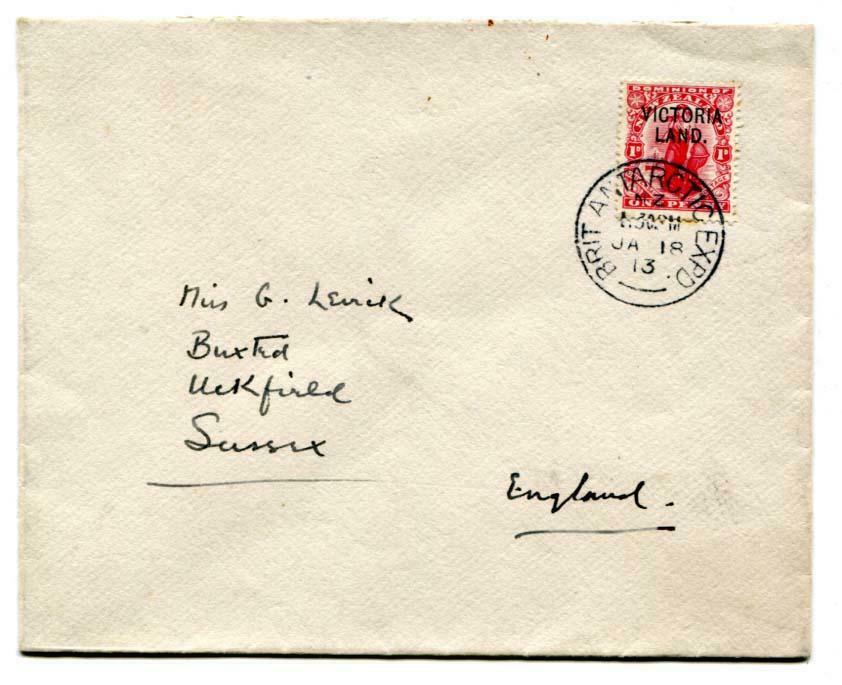 DOMINION OF
NEW ZEALAND
VICTORIA
LAND.
1D 1D
ONE PENNY
BRIT ANTARCTIC EXPD.
N Z
JA 18
13
Miss G. Levick
Buxted
Uckfield
Sussex
England.